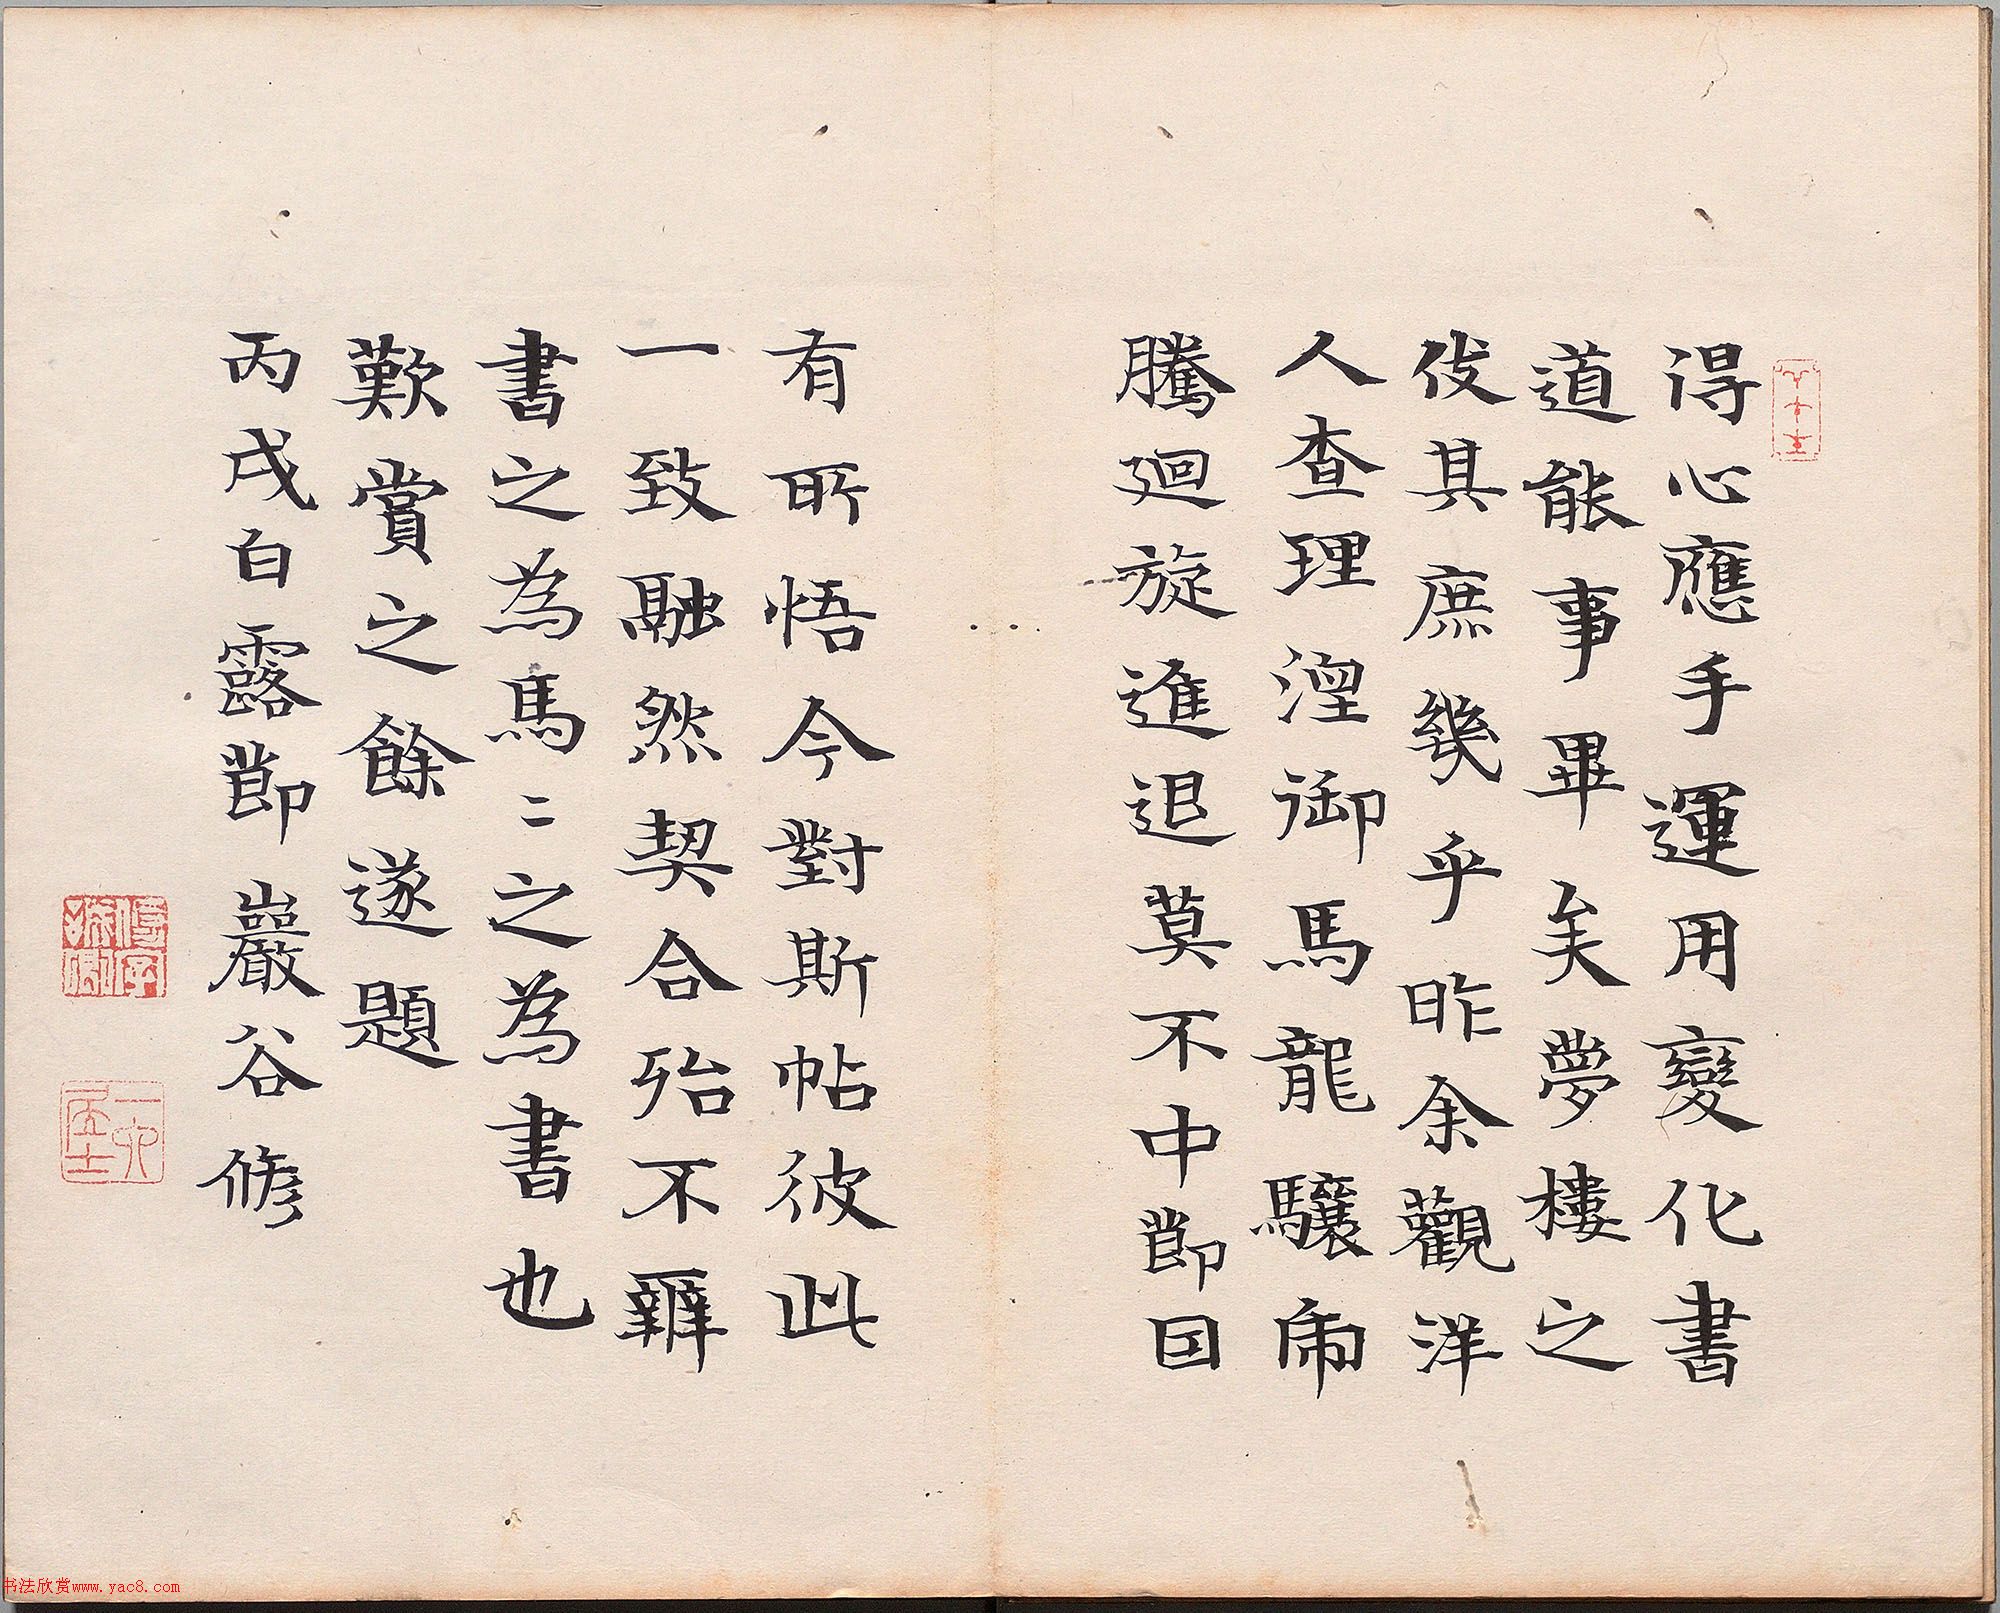 得心應手運用變化書
道能事畢矣夢樓之
伎其庶幾乎昨余觀洋
人查理涅御馬龍驤虎
騰廻旋進退莫不中節因
有所悟今對斯帖彼此
一致融然契合殆不辨
書之為馬〻之為書也
歎賞之餘遂題
丙戌白露節巖谷脩
一六居士
书法欣赏www.yac8.com